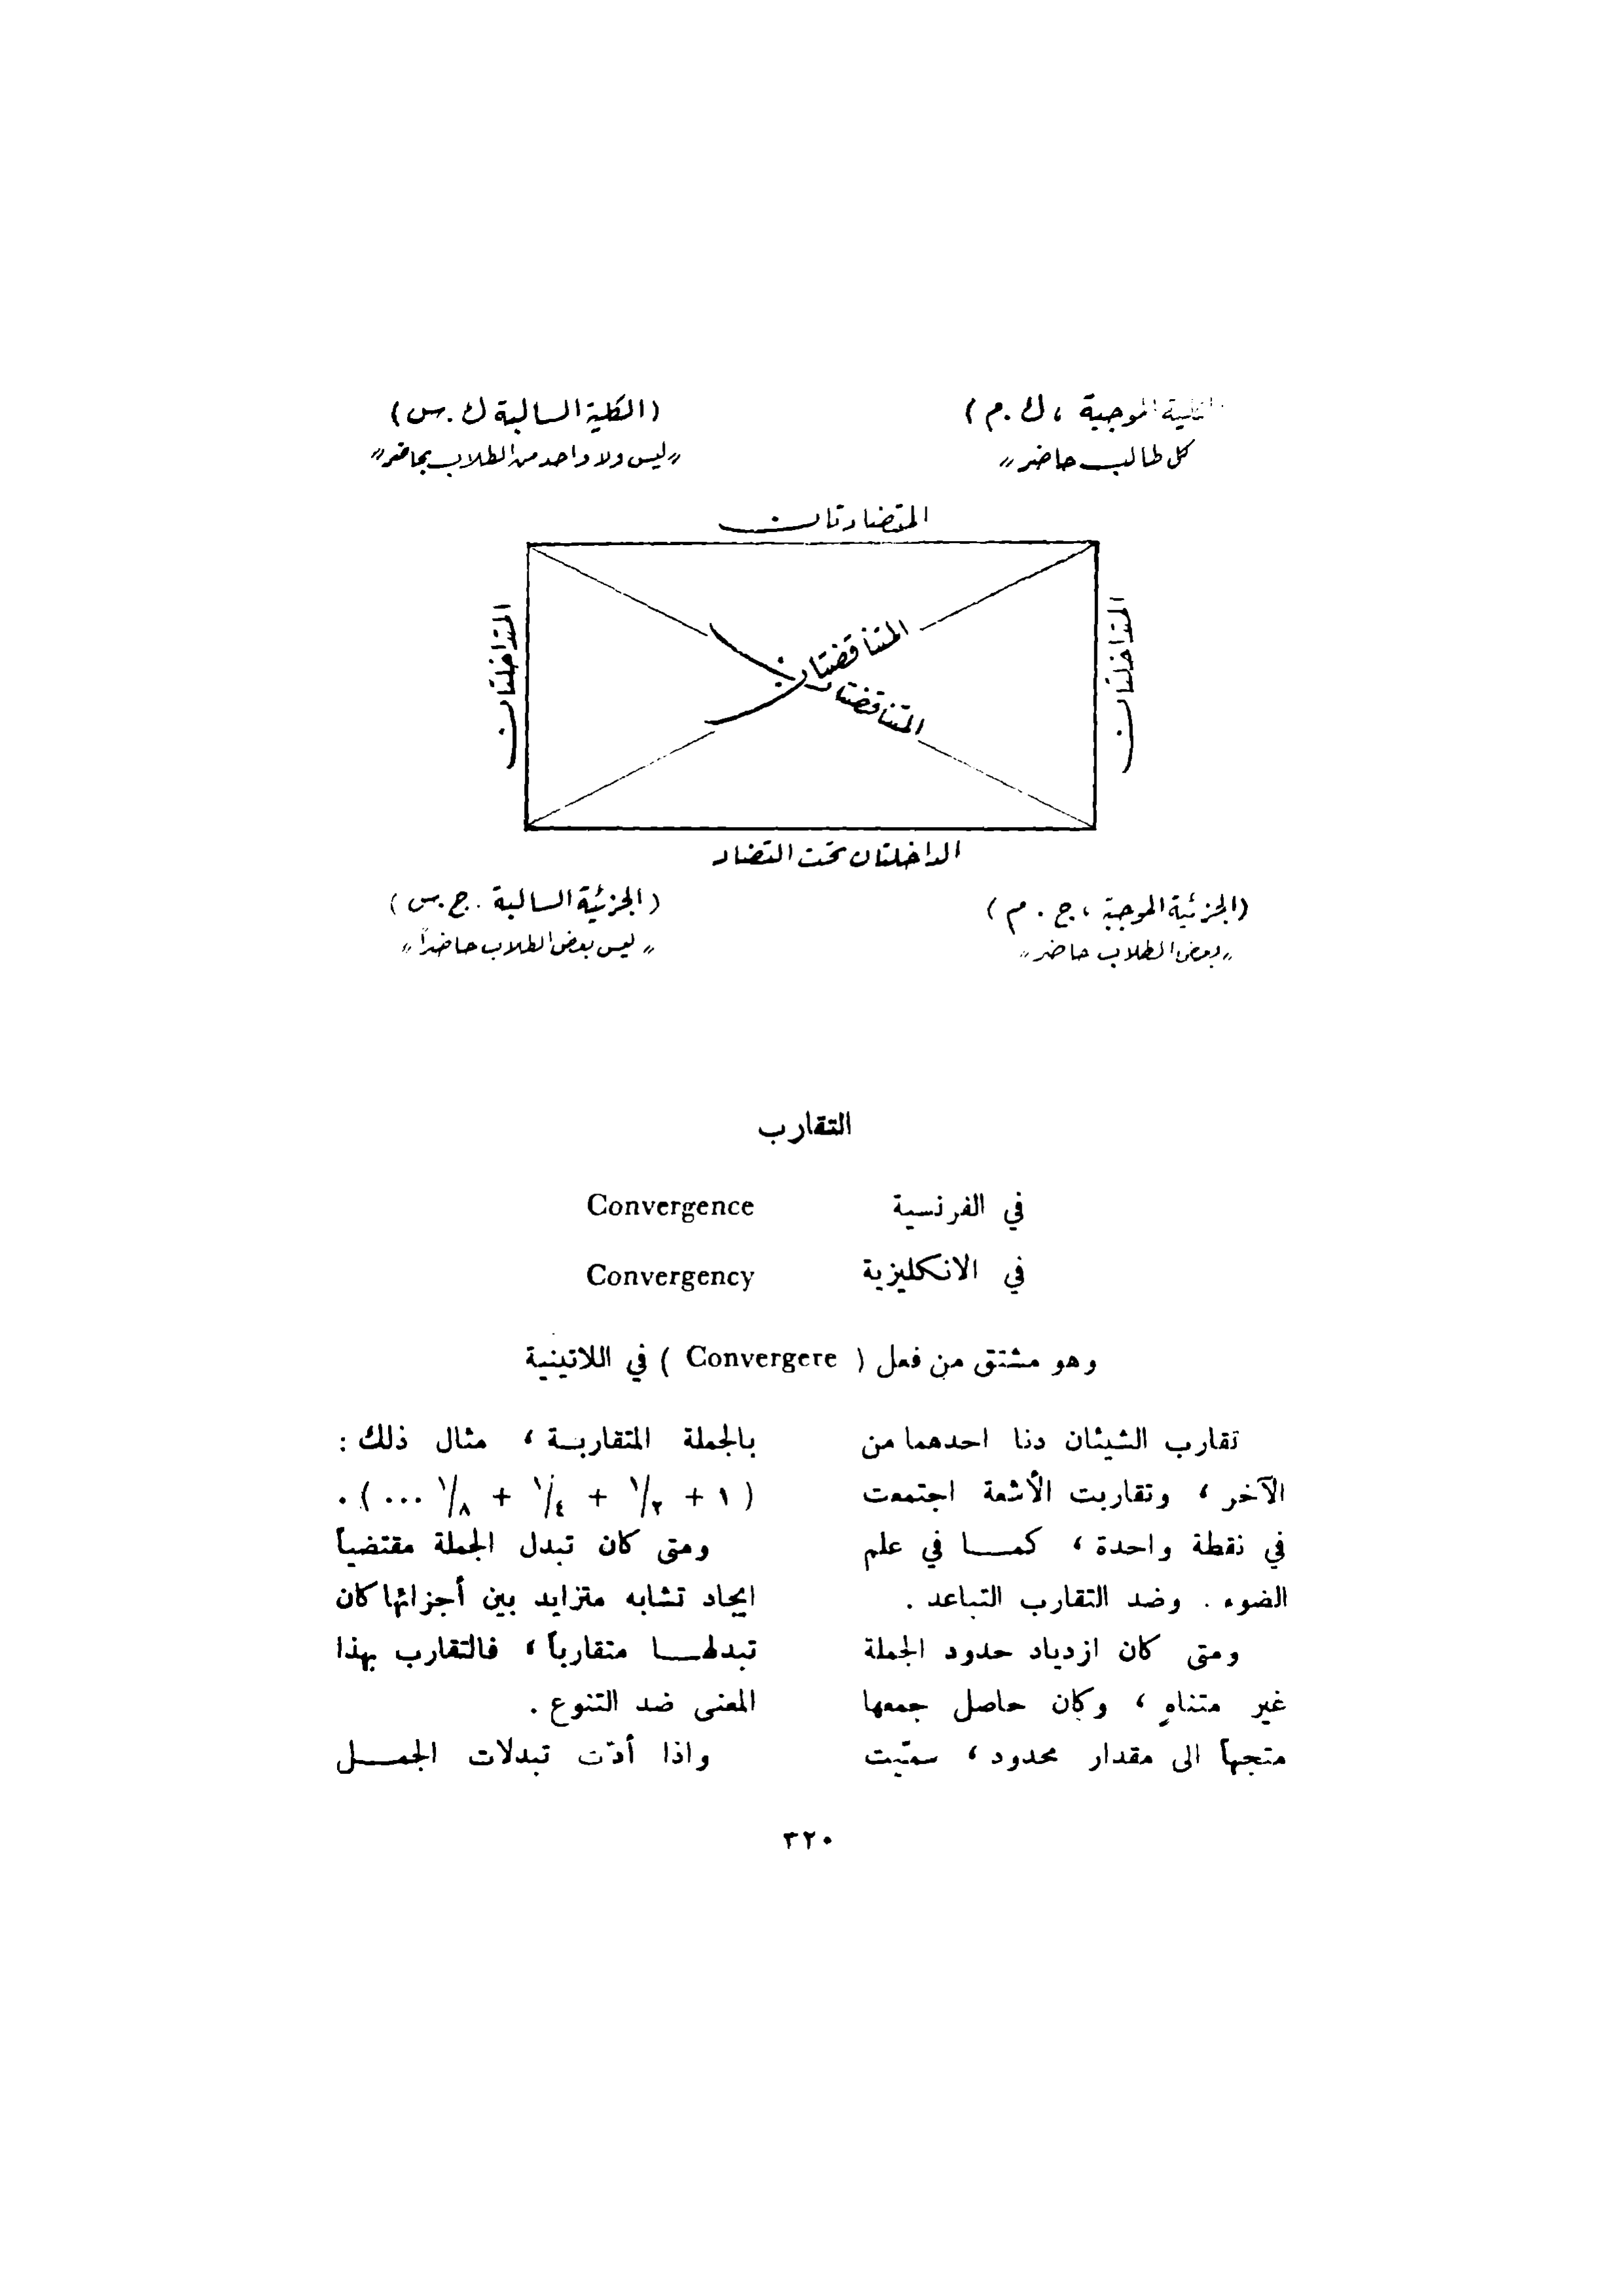 الكلية الموجبة ، ك . م )
كل طالب حاضر »
(الكلية السالبة ك . س )
« ليس ولا واحد من الطلاب بحاضر »
المتضادتان
المتداخلتان
المتناقضتان
المتناقضتان
المتداخلتان
الداخلتان تحت التضاد
(الجزئية الموجبة ، ج . م )
« بعض الطلاب حاضر »
(الجزئية السالبة . ج . س )
« ليس بعض الطلاب حاضراً »
التقارب
في الفرنسية Convergence
في الانكليزية Convergency
وهو مشتق من فعل ( Convergere ) في اللاتينية
تقارب الشيئان دنا احدهما من
الآخر ، وتقاربت الأشعة اجتمعت
في نقطة واحدة ، كمـــا في علم
الضوء . وضد التقارب التباعد .
ومتى كان ازدياد حدود الجملة
غير متناهٍ ، وكان حاصل جمعها
متجهاً الى مقدار محدود ، سمّيت
بالجملة المتقاربـة ، مثال ذلك :
( ١ + ١/٢ + ١/٤ + ١/٨ ... ) .
ومتى كان تبدل الجملة مقتضياً
ايجاد تشابه متزايد بين أجزائها كان
تبدلهـــا متقارباً ، فالتقارب بهذا
المعنى ضد التنوع .
واذا أدّت تبدلات الجمـــل
٣٢٠